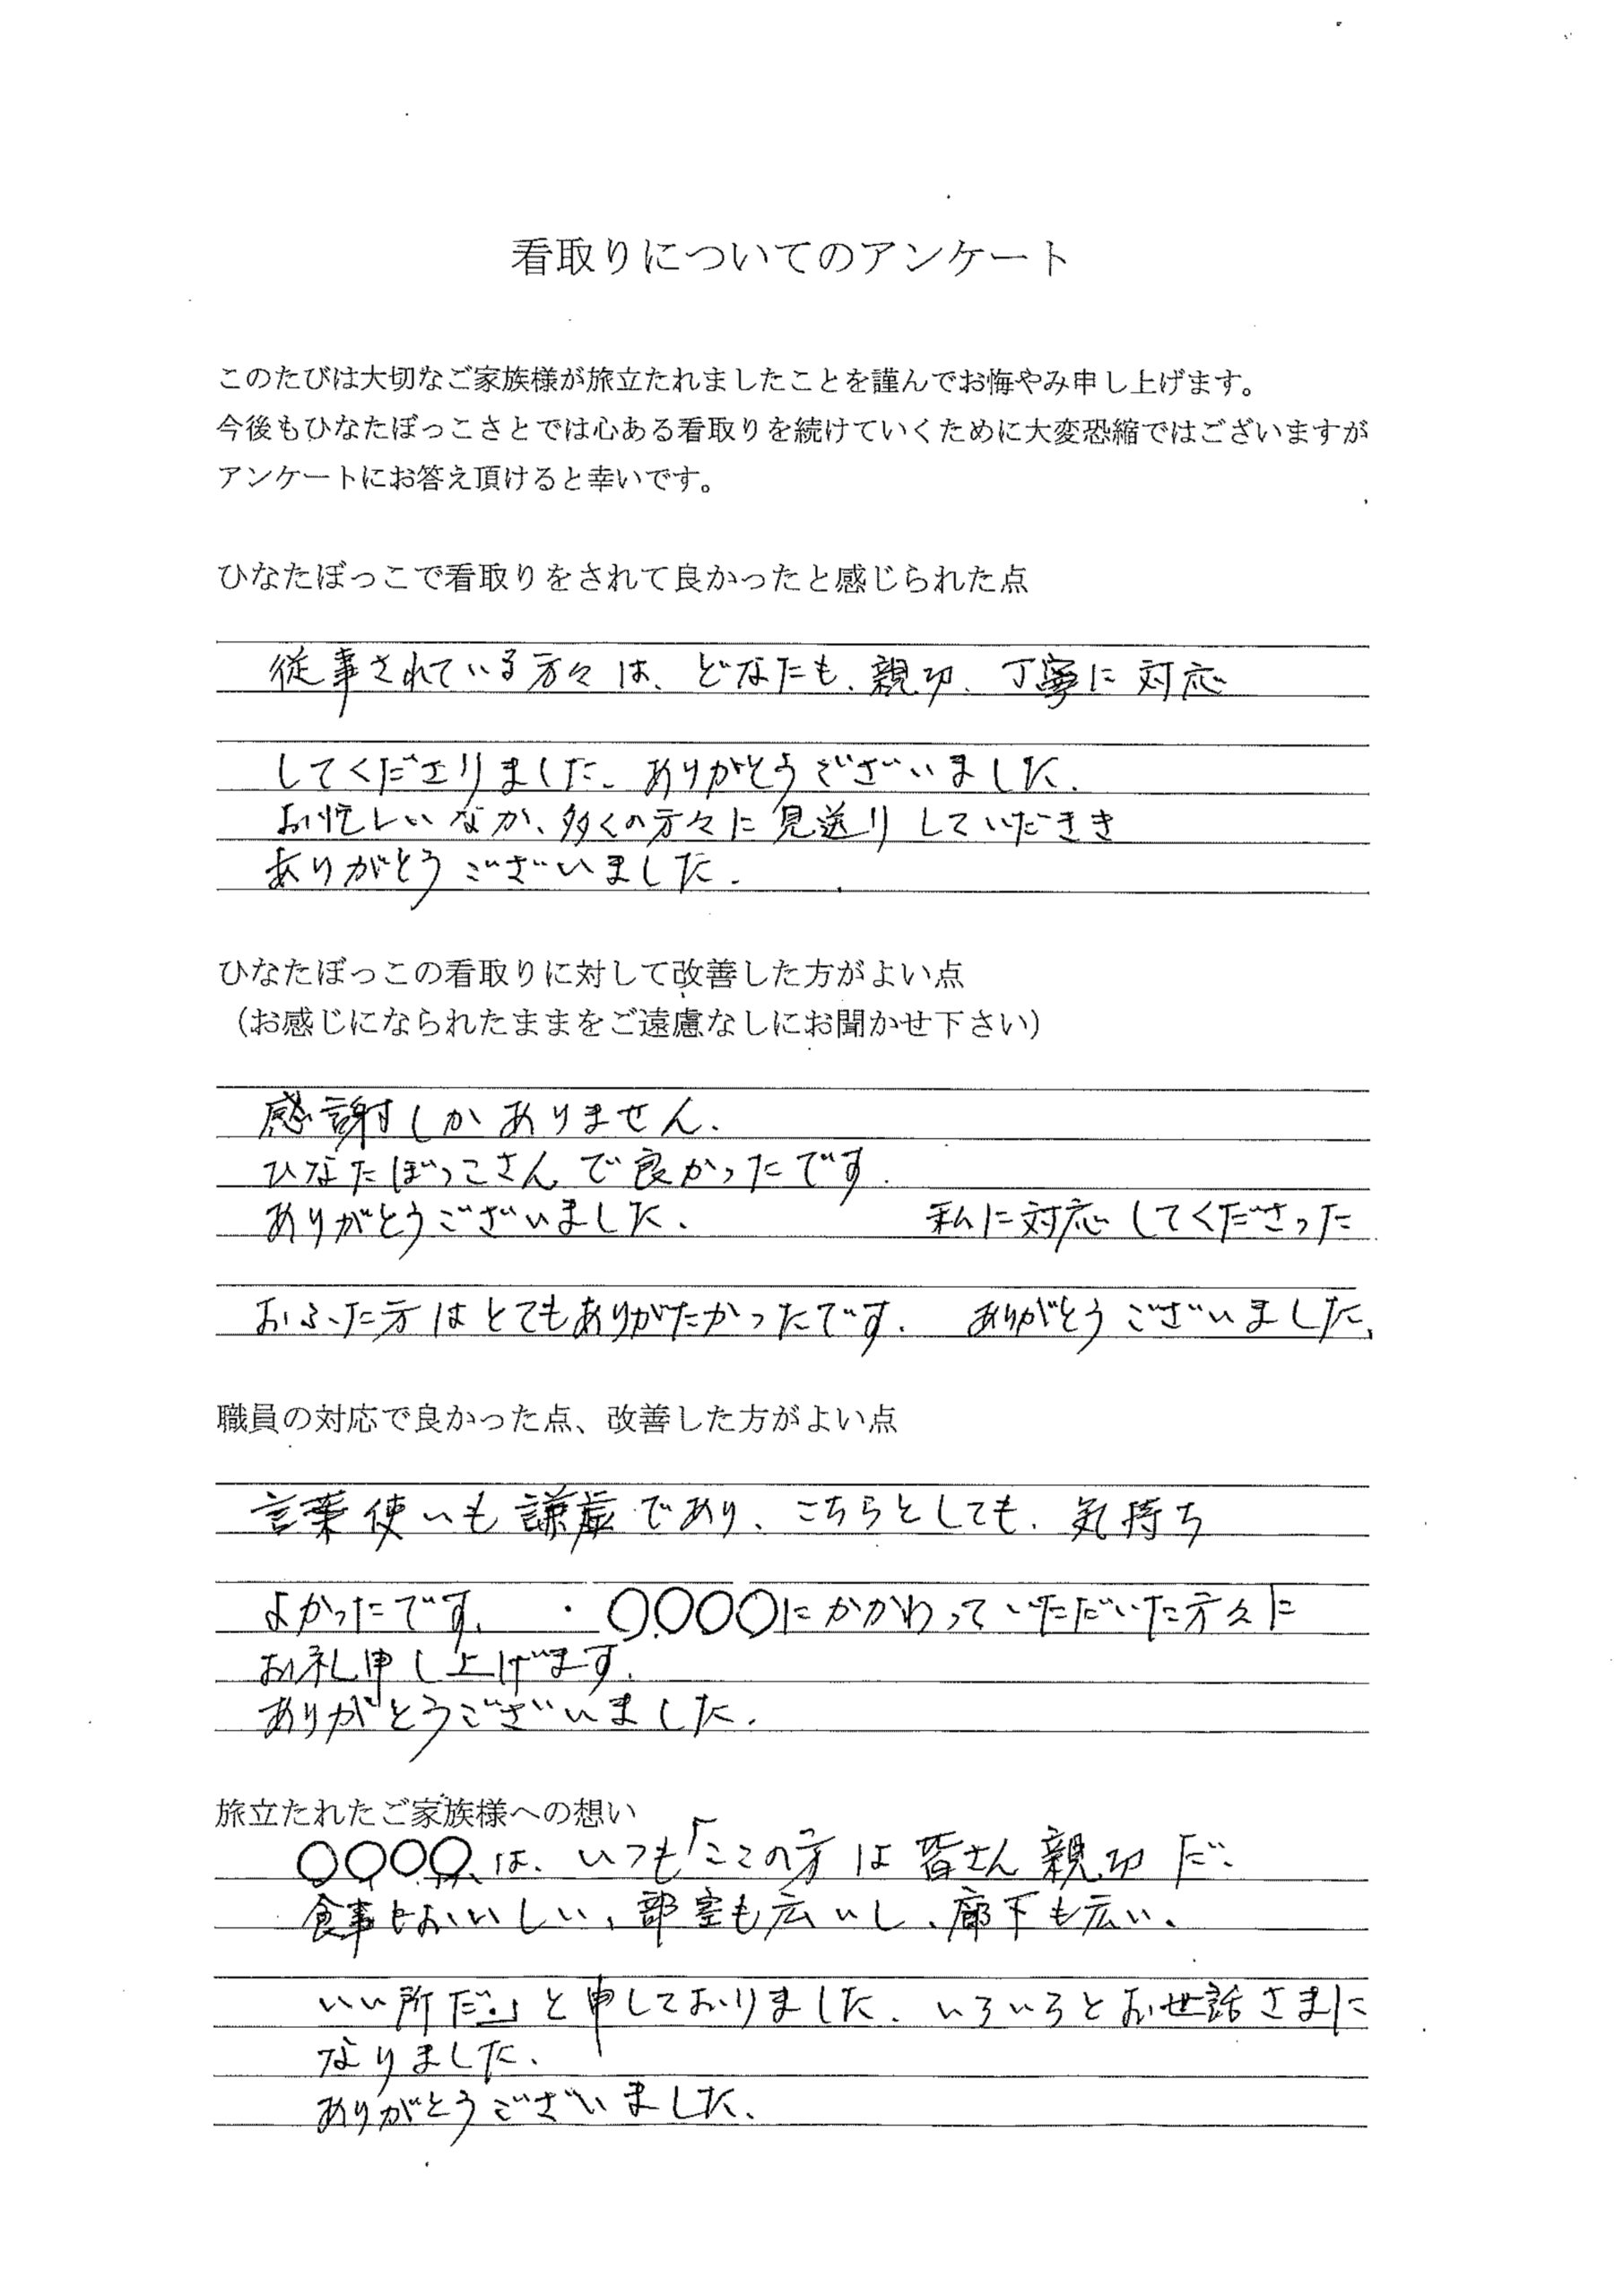 看取りについてのアンケート
このたびは大切なご家族様が旅立たれましたことを謹んでお悔やみ申し上げます。
今後もひなたぼっこさとでは心ある看取りを続けていくために大変恐縮ではございますが
アンケートにお答え頂けると幸いです。
ひなたぼっこで看取りをされて良かったと感じられた点
従事されている方々は、どなたも、親切、丁寧に対応
してくださりました。ありがとうございました。
お忙しいなか、多くの方々に見送りしていただきき
ありがとうございました。
ひなたぼっこの看取りに対して改善した方がよい点
（お感じになられたままをご遠慮なしにお聞かせ下さい）
感謝しかありません。
ひなたぼっこさんで良かったです。
ありがとうございました。 私に対応してくださった
おふた方はとてもありがたかったです。 ありがとうございました。
職員の対応で良かった点、改善した方がよい点
言葉使いも謙虚であり、こちらとしても、気持ち
よかったです。 ・〇〇〇〇にかかわっていただいた方々に
お礼申し上げます。
ありがとうございました。
旅立たれたご家族様への想い
〇〇〇〇は、いつも「ここの方は皆さん親切だ。
食事もおいしい、部室も広いし、廊下も広い。
いい所だ。」と申しておりました。いろいろとお世話さまに
なりました。
ありがとうございました。